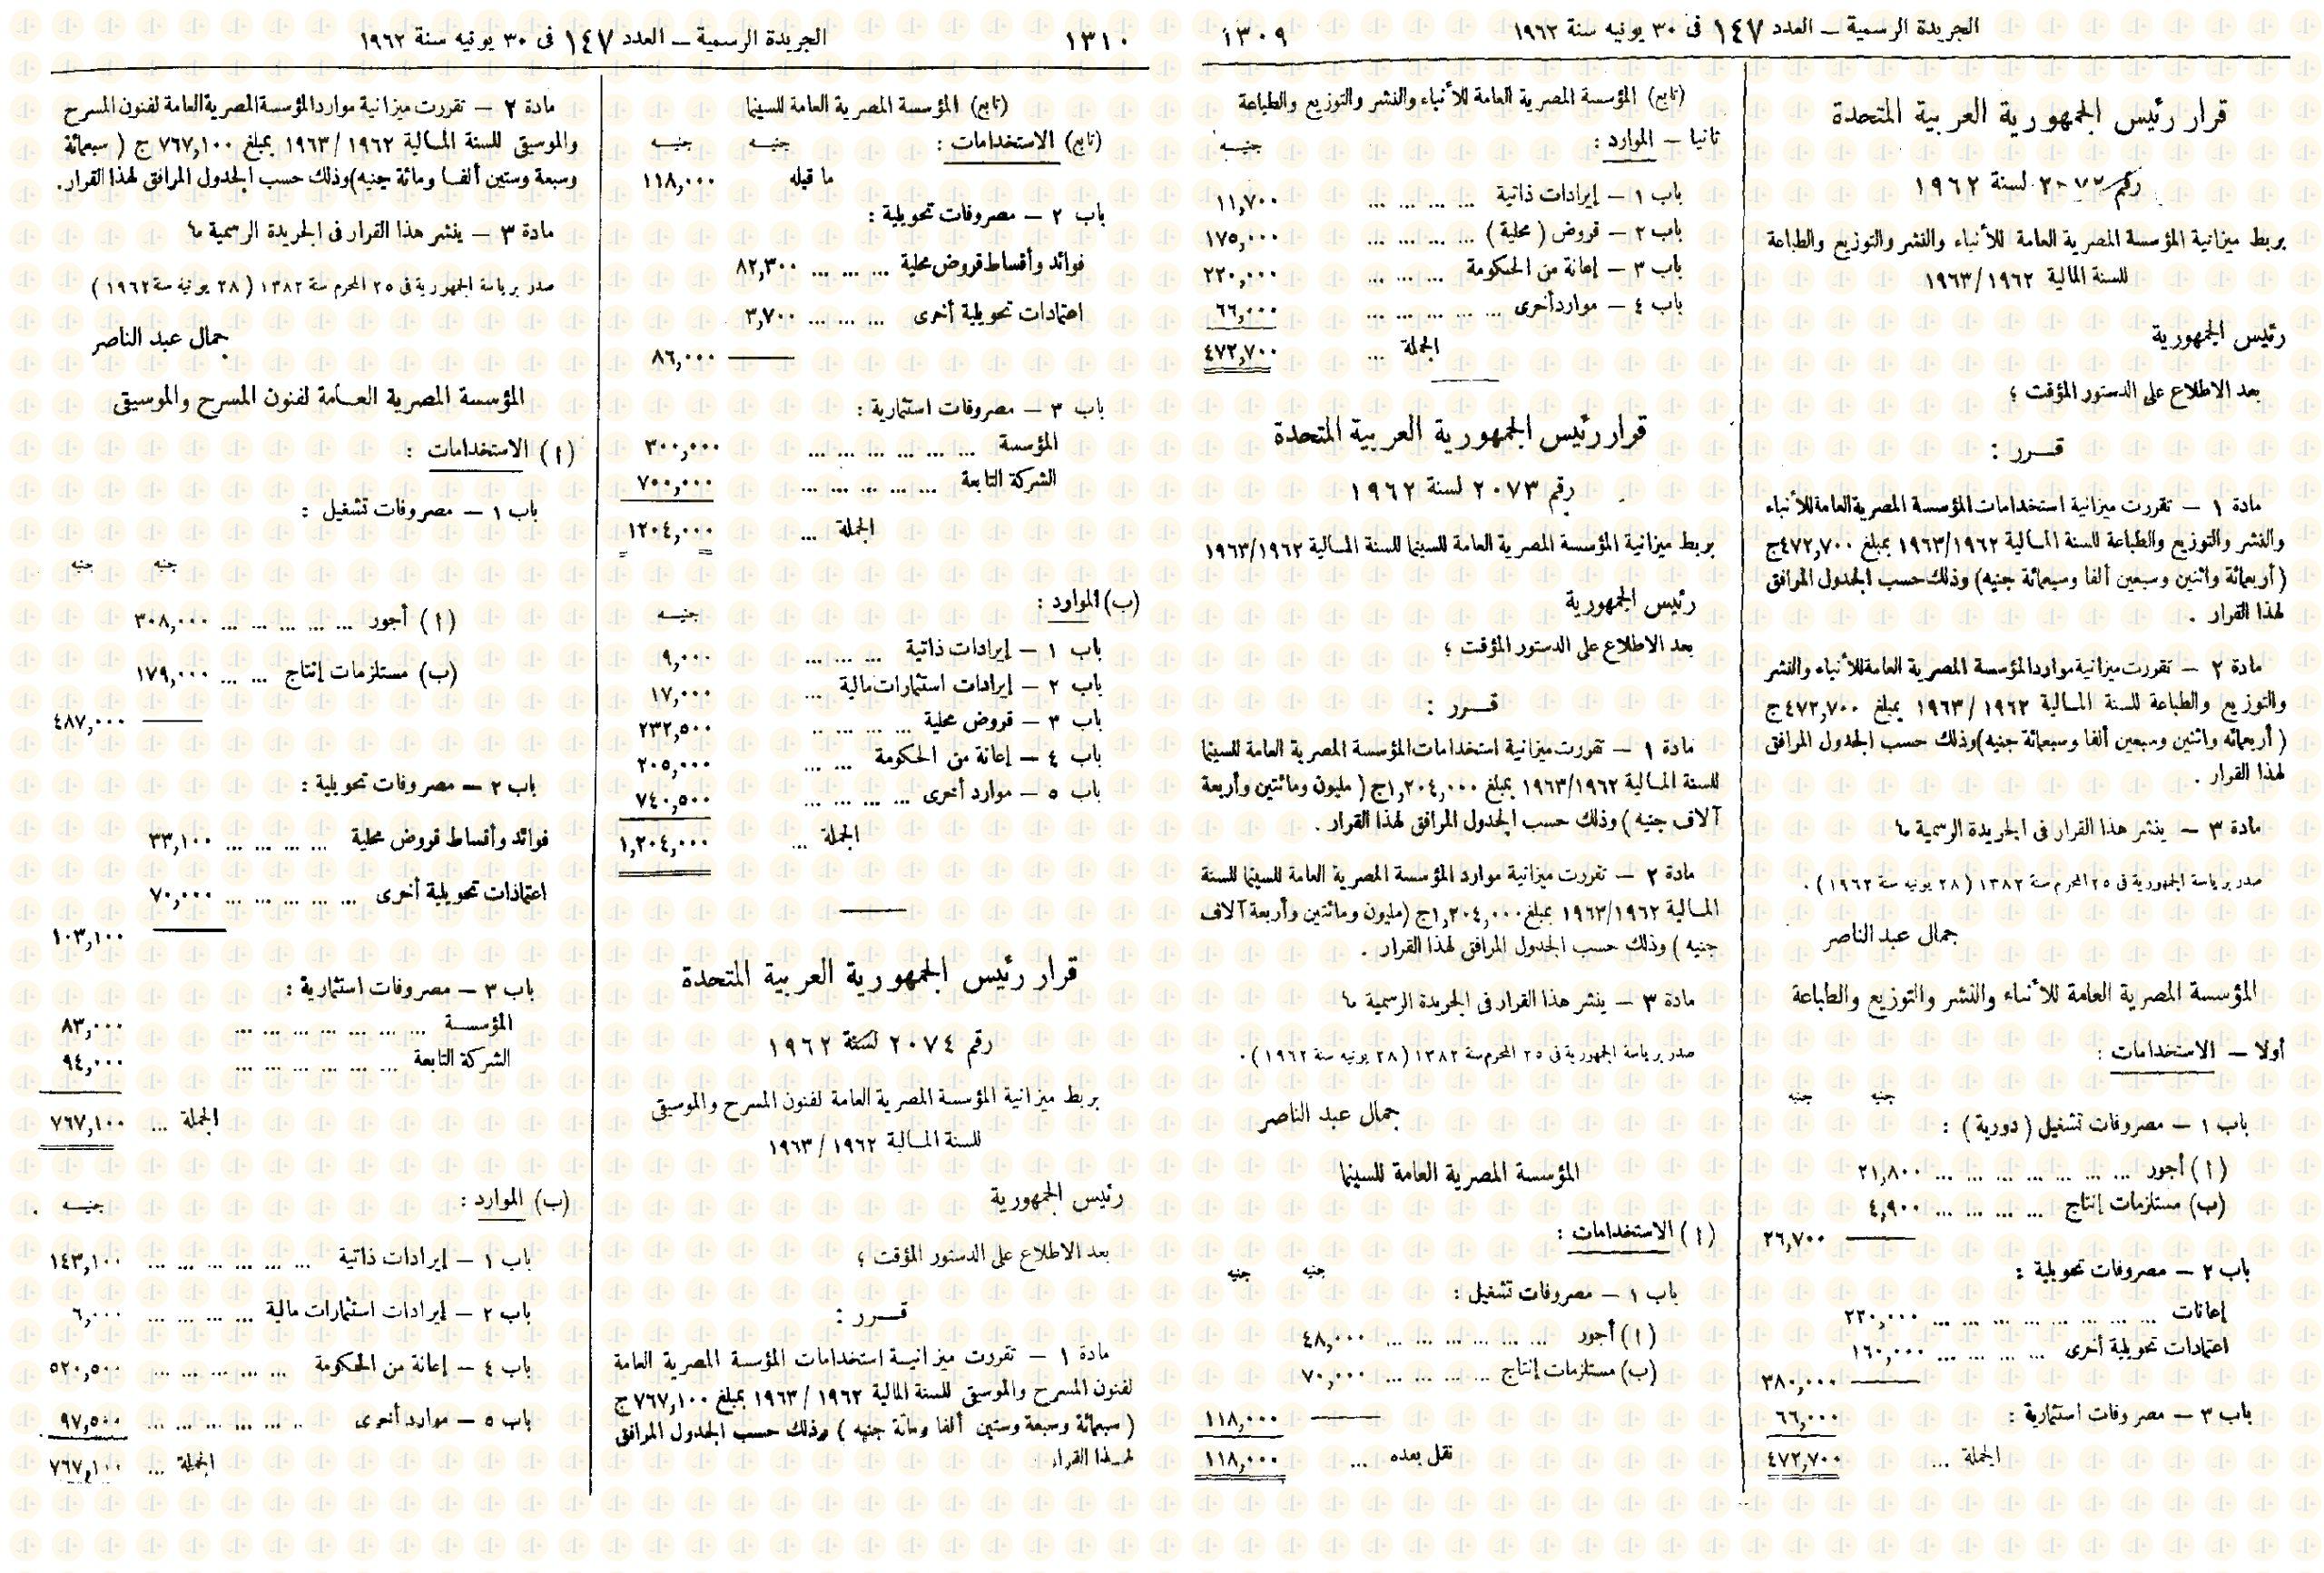 الجريدة الرسمية – العدد ١٤٧ فى ٣٠ يونيه سنة ١٩٦٢
١٣٠٩
قرار رئيس الجمهورية العربية المتحدة
رقم ٢٠٧٢ لسنة ١٩٦٢
بربط ميزانية المؤسسة المصرية العامة للأنباء والنشر والتوزيع والطباعة
للسنة المالية ١٩٦٢/١٩٦٣
رئيس الجمهورية
بعد الاطلاع على الدستور المؤقت ؛
قــرر :
مادة ١ – تقررت ميزانية استخدامات المؤسسة المصرية العامة للأنباء
والنشر والتوزيع والطباعة للسنة المالية ١٩٦٢/١٩٦٣ بمبلغ ٤٧٢,٧٠٠ج
(أربعمائة واثنين وسبعين ألفا وسبعمائة جنيه) وذلك حسب الجدول المرافق
لهذا القرار .
مادة ٢ – تقررت ميزانية موارد المؤسسة المصرية العامة للأنباء والنشر
والتوزيع والطباعة للسنة المالية ١٩٦٢/١٩٦٣ بمبلغ ٤٧٢,٧٠٠ج
(أربعمائه واثنين وسبعين ألفا وسبعمائة جنيه) وذلك حسب الجدول المرافق
لهذا القرار .
مادة ٣ – ينشر هذا القرار فى الجريدة الرسمية ما
صدر برياسة الجمهورية فى ٢٥ المحرم سنة ١٣٨٢ (٢٨ يونيه سنة ١٩٦٢) .
جمال عبد الناصر
المؤسسة المصرية العامة للأنباء والنشر والتوزيع والطباعة
أولا – الاستخدامات :
جنيه جنيه
باب ١ – مصروفات تشغيل (دورية) :
(١) أجور ... ... ... ... ... ... ... ٢١,٨٠٠
(ب) مستلزمات إنتاج ... ... ... ... ٤,٩٠٠
٢٦,٧٠٠
باب ٢ – مصروفات تحويلية :
إعانات ... ... ... ... ... ... ... ... ٢٢٠,٠٠٠
اعتمادات تحويلية أخرى ... ... ... ... ١٦٠,٠٠٠
٣٨٠,٠٠٠
باب ٣ – مصروفات استثمارية : ٦٦,٠٠٠
الجملة ... ٤٧٢,٧٠٠
(تابع) المؤسسة المصرية العامة للأنباء والنشر والتوزيع والطباعة
ثانيا – الموارد :
جنيــه
باب ١ – إيرادات ذاتية ... ... ... ... ١١,٧٠٠
باب ٢ – قروض (محلية) ... ... ... ... ١٧٥,٠٠٠
باب ٣ – إعانة من الحكومة ... ... ... ٢٢٠,٠٠٠
باب ٤ – موارد أخرى ... ... ... ... ... ٦٦,٠٠٠
الجملة ... ٤٧٢,٧٠٠
قرار رئيس الجمهورية العربية المتحدة
رقم ٢٠٧٣ لسنة ١٩٦٢
بربط ميزانية المؤسسة المصرية العامة للسينما للسنة المالية ١٩٦٢/١٩٦٣
رئيس الجمهورية
بعد الاطلاع على الدستور المؤقت ؛
قــرر :
مادة ١ – تقررت ميزانية استخدامات المؤسسة المصرية العامة للسينما
للسنة المالية ١٩٦٢/١٩٦٣ بمبلغ ١,٢٠٤,٠٠٠ج (مليون ومائتين وأربعة
آلاف جنيه) وذلك حسب الجدول المرافق لهذا القرار .
مادة ٢ – تقررت ميزانية موارد المؤسسة المصرية العامة للسينما للسنة
المالية ١٩٦٢/١٩٦٣ بمبلغ ١,٢٠٤,٠٠٠ج (مليون ومائتين وأربعة آلاف
جنيه) وذلك حسب الجدول المرافق لهذا القرار .
مادة ٣ – ينشر هذا القرار فى الجريدة الرسمية ما
صدر برياسة الجمهورية فى ٢٥ المحرم سنة ١٣٨٢ (٢٨ يونيه سنة ١٩٦٢) .
جمال عبد الناصر
المؤسسة المصرية العامة للسينما
(١) الاستخدامات :
جنيه جنيه
باب ١ – مصروفات تشغيل :
(١) أجور ... ... ... ... ... ... ٤٨,٠٠٠
(ب) مستلزمات إنتاج ... ... ... ... ٧٠,٠٠٠
١١٨,٠٠٠
نقل بعده ... ١١٨,٠٠٠
١٣١٠
الجريدة الرسمية – العدد ١٤٧ فى ٣٠ يونيه سنة ١٩٦٢
(تابع) المؤسسة المصرية العامة للسينما
(تابع) الاستخدامات : جنيــه جنيــه
ما قبله ١١٨,٠٠٠
باب ٢ – مصروفات تحويلية :
فوائد وأقساط قروض محلية ... ... ... ٨٢,٣٠٠
اعتمادات تحويلية أخرى ... ... ... ٣,٧٠٠
٨٦,٠٠٠
باب ٣ – مصروفات استثمارية :
المؤسسة ... ... ... ... ... ... ٣٠٠,٠٠٠
الشركة التابعة ... ... ... ... ... ٧٠٠,٠٠٠
الجملة ... ١٢٠٤,٠٠٠
(ب) الموارد : جنيــه
باب ١ – إيرادات ذاتية ... ... ... ٩,٠٠٠
باب ٢ – إيرادات استثمارات مالية ... ١٧,٠٠٠
باب ٣ – قروض محلية ... ... ... ... ٢٣٢,٥٠٠
باب ٤ – إعانة من الحكومة ... ... ٢٠٥,٠٠٠
باب ٥ – موارد أخرى ... ... ... ... ٧٤٠,٥٠٠
الجملة ... ١,٢٠٤,٠٠٠
قرار رئيس الجمهورية العربية المتحدة
رقم ٢٠٧٤ لسنة ١٩٦٢
بربط ميزانية المؤسسة المصرية العامة لفنون المسرح والموسيقى
للسنة المالية ١٩٦٢/١٩٦٣
رئيس الجمهورية
بعد الاطلاع على الدستور المؤقت ؛
قــرر :
مادة ١ – تقررت ميزانية استخدامات المؤسسة المصرية العامة
لفنون المسرح والموسيقى للسنة المالية ١٩٦٢/١٩٦٣ بمبلغ ٧٦٧,١٠٠ ج
(سبعمائة وسبعة وستين ألفا ومائة جنيه) وذلك حسب الجدول المرافق
لهذا القرار
مادة ٢ – تقررت ميزانية موارد المؤسسة المصرية العامة لفنون المسرح
والموسيقى للسنة المالية ١٩٦٢/١٩٦٣ بمبلغ ٧٦٧,١٠٠ ج (سبعمائة
وسبعة وستين ألفا ومائة جنيه) وذلك حسب الجدول المرافق لهذا القرار.
مادة ٣ – ينشر هذا القرار فى الجريدة الرسمية ما
صدر برياسة الجمهورية فى ٢٥ المحرم سنة ١٣٨٢ (٢٨ يونيه سنة ١٩٦٢)
جمال عبد الناصر
المؤسسة المصرية العامة لفنون المسرح والموسيقى
(١) الاستخدامات :
باب ١ – مصروفات تشغيل :
جنيه جنيه
(١) أجور ... ... ... ... ... ٣٠٨,٠٠٠
(ب) مستلزمات إنتاج ... ... ١٧٩,٠٠٠
٤٨٧,٠٠٠
باب ٢ – مصروفات تحويلية :
فوائد وأقساط قروض محلية ... ... ... ... ٣٣,١٠٠
اعتمادات تحويلية أخرى ... ... ... ... ... ٧٠,٠٠٠
١٠٣,١٠٠
باب ٣ – مصروفات استثمارية :
المؤسسـة ... ... ... ... ... ... ... ٨٣,٠٠٠
الشركة التابعة ... ... ... ... ... ... ٩٤,٠٠٠
الجملة ... ٧٦٧,١٠٠
(ب) الموارد : جنيــه
باب ١ – إيرادات ذاتية ... ... ... ... ... ... ١٤٣,١٠٠
باب ٢ – إيرادات استثمارات مالية ... ... ... ... ٦,٠٠٠
باب ٤ – إعانة من الحكومة ... ... ... ... ... ٥٢٠,٥٠٠
باب ٥ – موارد أخرى ... ... ... ... ... ... ٩٧,٥٠٠
الجملة ... ٧٦٧,١٠٠